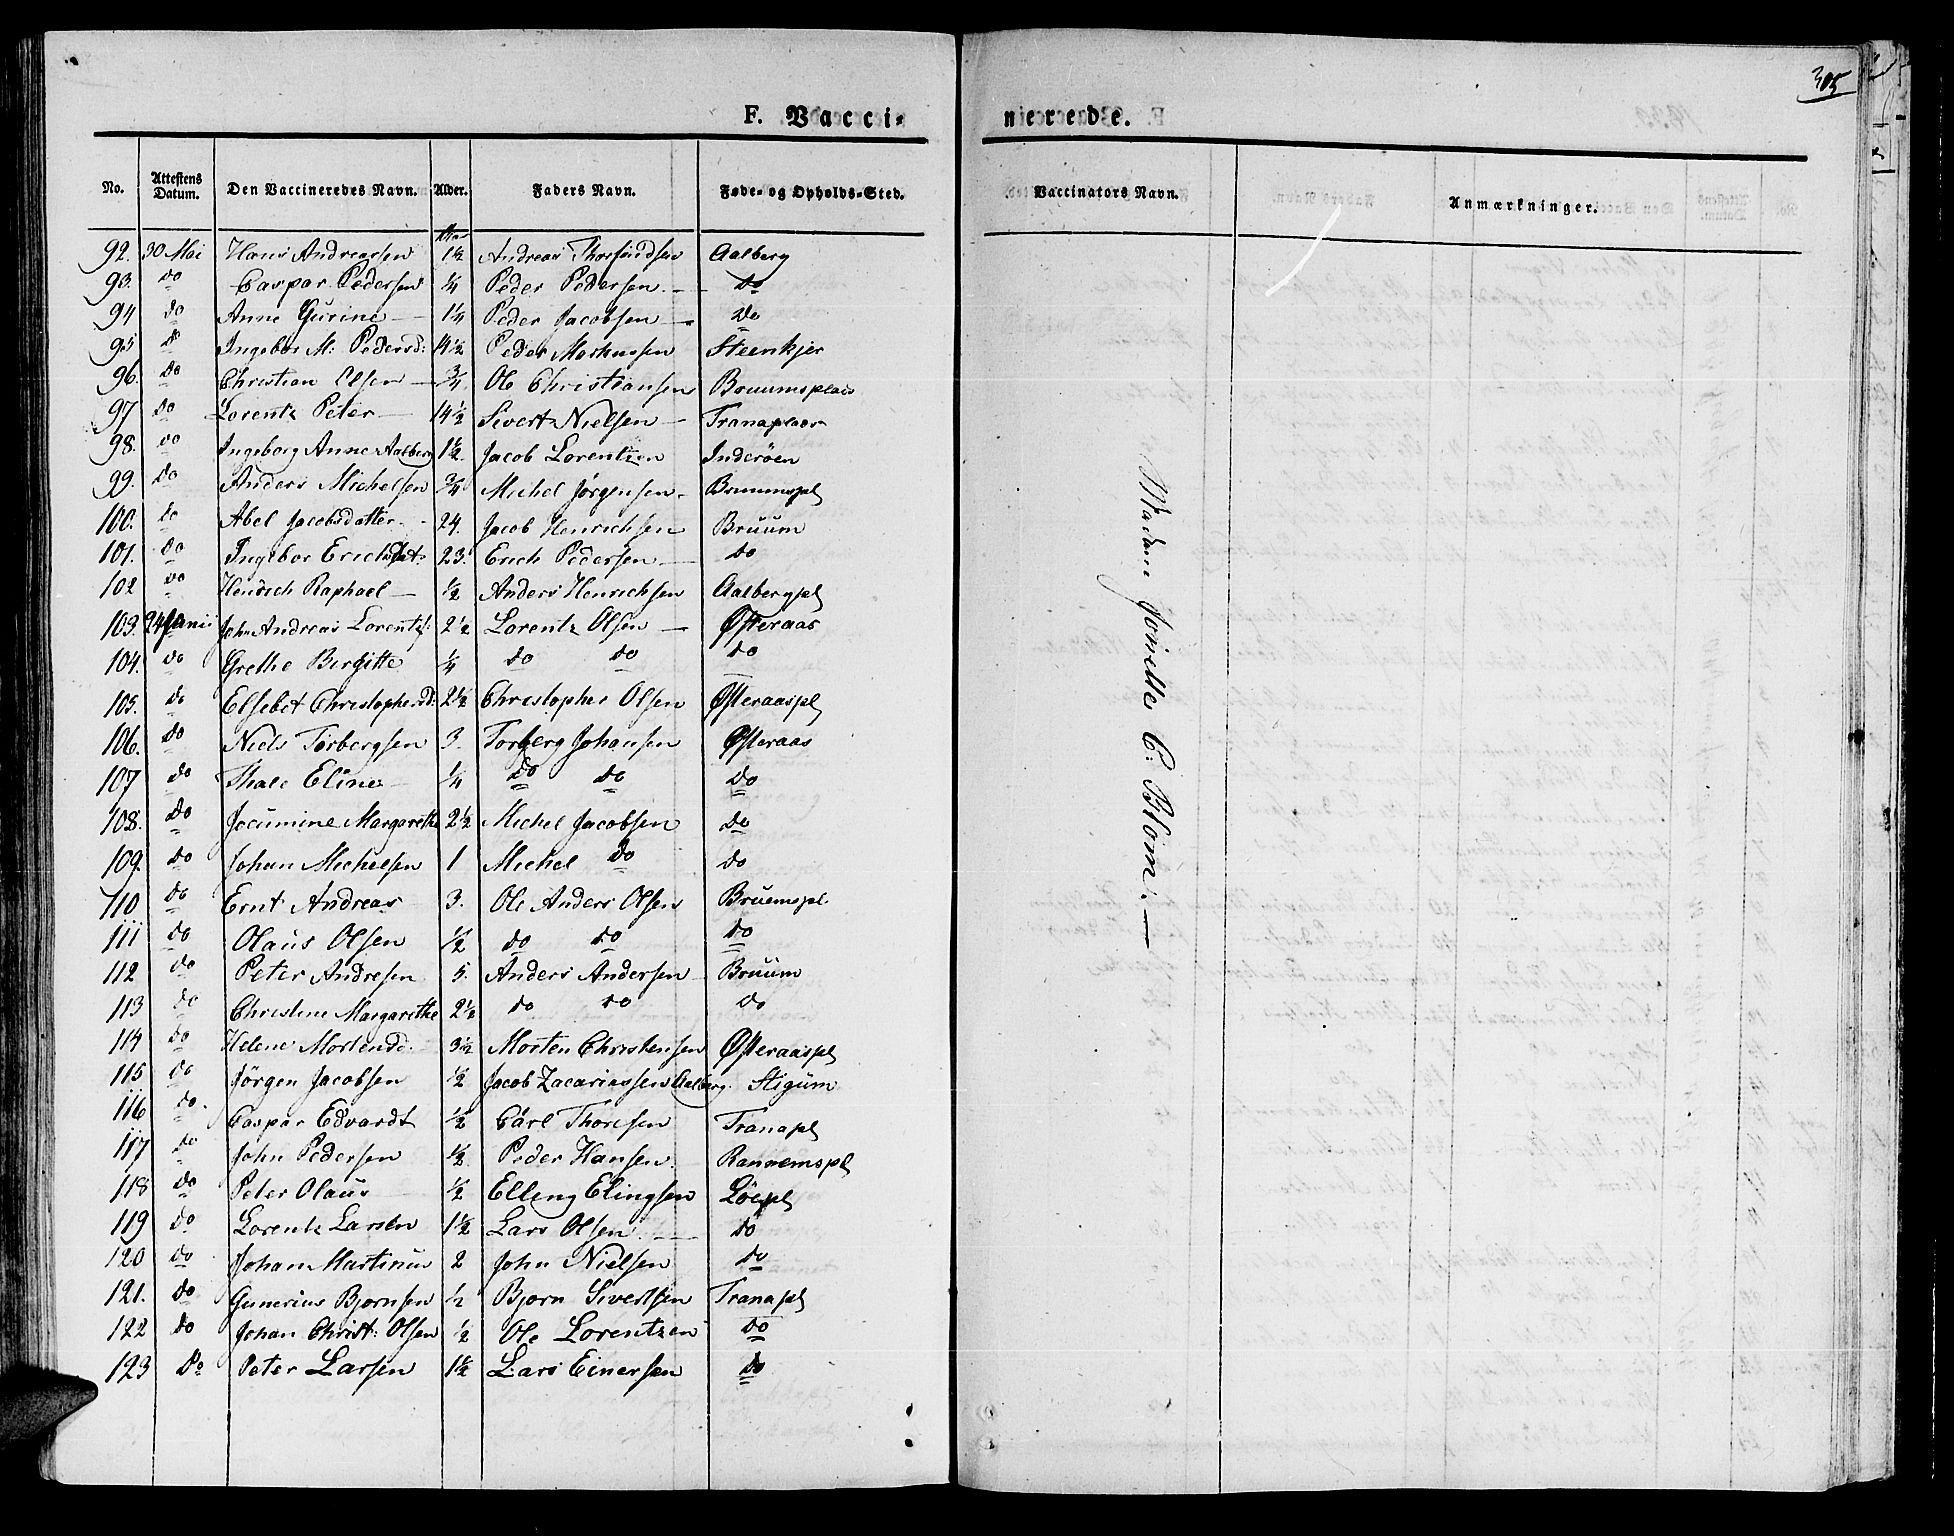 305
F. Vacci-
nerede.
No. Attestens Datum. Den Vaccineredes Navn. Alder. Faders Navn. Føde- og Opholds-Sted. Vaccinators Navn. Anmærkninger.
92. 30 Mai Hans Andreassen 1½ Andreas Aalberg
93. do Caspar Pedersen ¼ Peder Pedersen do
94 do Anne Gurine 1¼ Peder Jacobsen do
95 do Ingebor M: Pedersd: 14½ Peder Markussen Steenkjer
96. do Christian Olsen ¾ Ole Christiansen Bruumsplads
97 do Lorentz Peter 14½ Sivert Nielsen Tranaplads
98. do Ingeborg Anne Aalberg 1½ Jacob Lorentzen Inderøen
99. do Anders Michelsen ¾ Michel Jørgensen Bruumspl
100. do Abel Jacobsdatter 24. Jacob Henrichsen Bruum
101. do Ingebor Erichsdat: 23. Erich Pedersen do
102 do Henrich Raphael ½ Anders Henrichsen Aalbergpl
103. 24 Junii John Andreas Lorentz: 2½ Lorentz Olsen Østeraas
104. do Grethe Birgitte ¼ do do do
105. do Elsebet Christophersd: 2½ Christopher Olsen Østeraaspl
106. do Niels Torbergsen 3. Torberg Johansen Østeraas
107 do Thale Eline ¼ do do do
108. do Jocumine Margarethe 2½ Michel Jacobsen do
109. do Johan Michelsen 1 Michel do do
110 do Ernt Andreas 3. Ole Anders Olsen Bruemspl
111 do Olaus Olsen ½ do do do
112 do Peter Andresen 5. Anders Andersen Bruum
113 do Christine Margarethe 2½ do do do
114 do Helene Mortensd. 3½ Morten Christensen Østeraaspl
115 do Jørgen Jacobsen ½ Jacob Zacariassen Aalberg. Stigum
116 do. Caspar Edvardt ½ Carl Thoresen Tranapl
117 do John Pedersen ½ Peder Hansen Rannemspl
118 do Peter Olaus ½ Elleng Elingsen Løepl
119 do Lorentz Larsen 1½ Lars Olsen do
120 do Johan Martinus 2 John Nielsen do
121. do Gunerius Bjornsen ½ Bjorn Sivertsen Tranapl
122 do Johan Christ: Olsen ½ Ole Lorentzen do
123 do Peter Larsen 1½ Lars Einersen do
Madm Jonette C: Bloim: